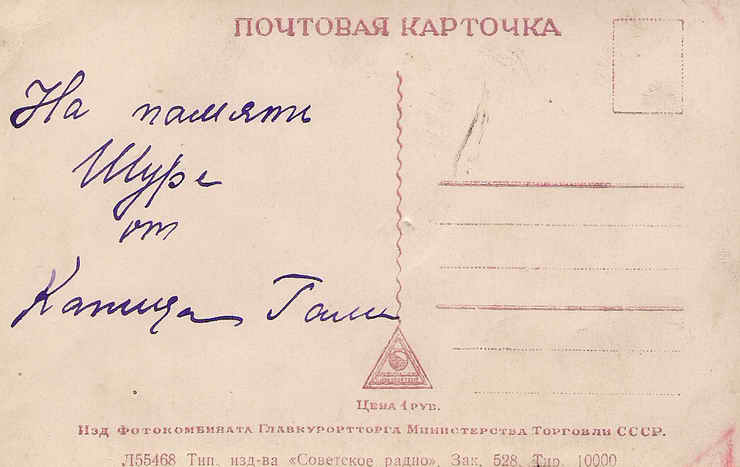 ПОЧТОВАЯ КАРТОЧКА
На память
Шуре
от
Капица Гали
Цена 1 руб.
Изд Фотокомбината Главкурортторга Министерства Торговли СССР.
Л55468 Тип. изд-ва «Советское радио», Зак. 528. Тир. 10000